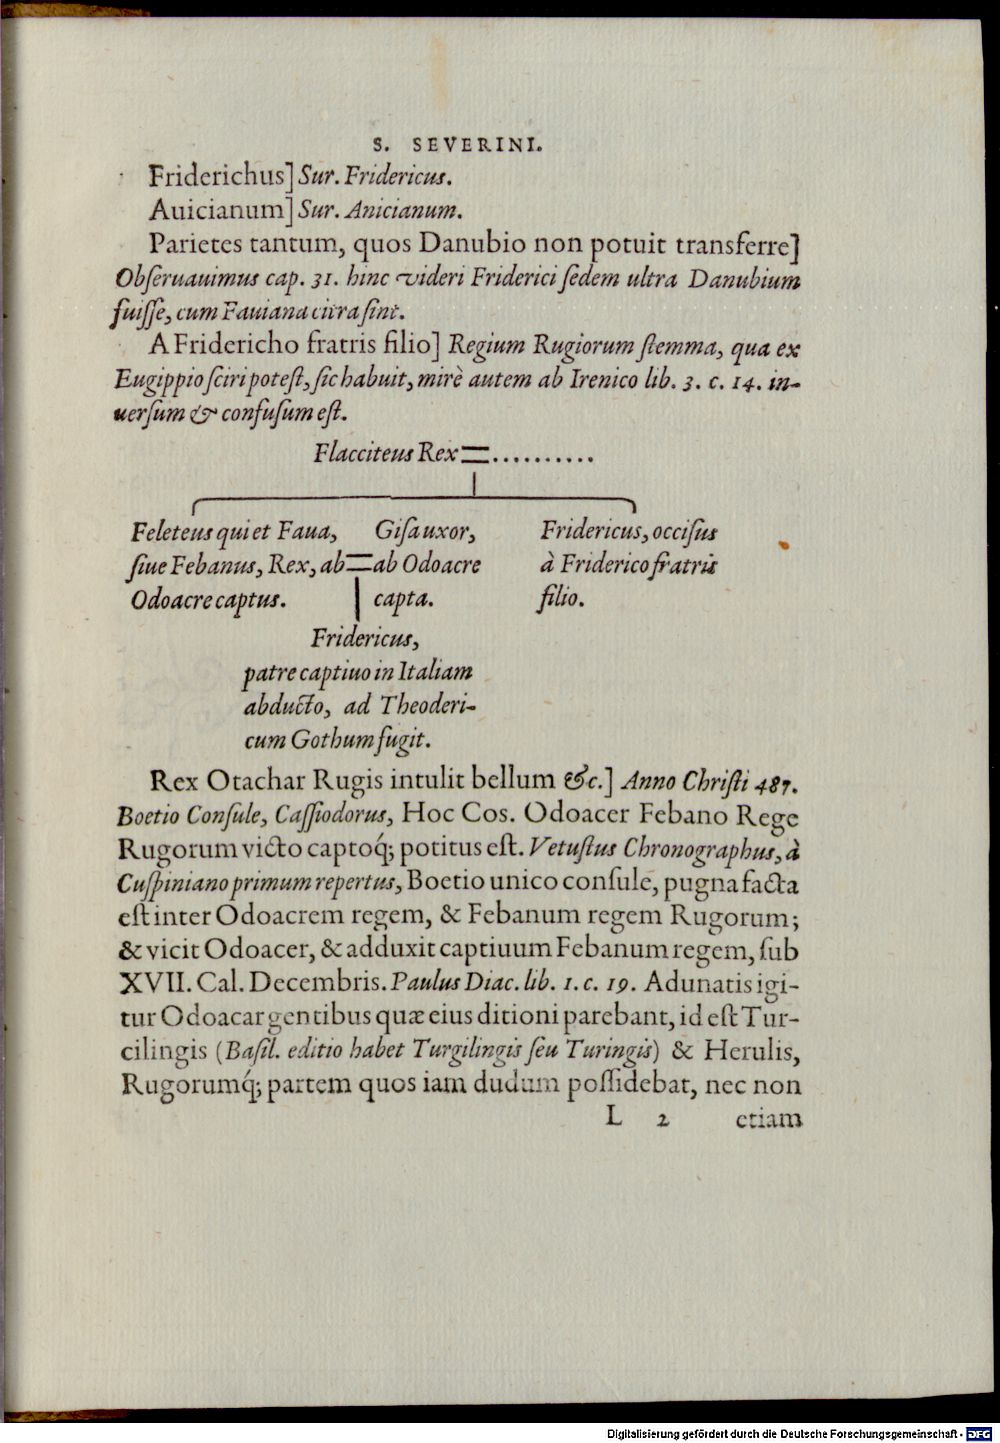 S. SEVERINI.
Friderichus] Sur. Fridericus.
Auicianum] Sur. Anicianum.
Parietes tantum, quos Danubio non potuit transferre]
Obſeruauimus cap. 31. hinc videri Friderici ſedem ultra Danubium
fuiſſe, cum Fauiana citra ſint.
A Friderichо fratris filio] Regium Rugiorum ſtemma, qua ex
Eugippio ſciri poteſt, ſic habuit, mirè autem ab Irenico lib. 3. c. 14. in-
uerſum & confuſum eſt.
Flacciteus Rex = ..........
Feleteus qui et Faua,
ſiue Febanus, Rex, ab
Odoacre captus.
=
Giſa uxor,
ab Odoacre
capta.
Fridericus, occiſus
à Friderico fratris
filio.
Fridericus,
patre captiuo in Italiam
abducto, ad Theoderi-
cum Gothum fugit.
Rex Otachar Rugis intulit bellum &c.] Anno Chriſti 487.
Boetio Conſule, Caſſiodorus, Hoc Cos. Odoacer Febano Rege
Rugorum victo captoq́; potitus eſt. Vetuſtus Chronographus, à
Cuſpiniano primum repertus, Boetio unico conſule, pugna facta
eſt inter Odoacrem regem, & Febanum regem Rugorum;
& vicit Odoacer, & adduxit captiuum Febanum regem, ſub
XVII. Cal. Decembris. Paulus Diac. lib. 1. c. 19. Adunatis igi-
tur Odoacar gentibus quæ eius ditioni parebant, id eſt Tur-
cilingis (Baſil. editio habet Turgilingis ſeu Turingis) & Herulis,
Rugorumq́; partem quos iam dudum poſſidebat, nec non
L 2 etiam
Digitalisierung gefördert durch die Deutsche Forschungsgemeinschaft - DFG